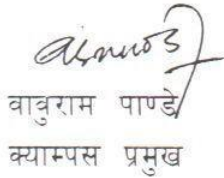 वावुराम पाण्डे
क्याम्पस प्रमुख